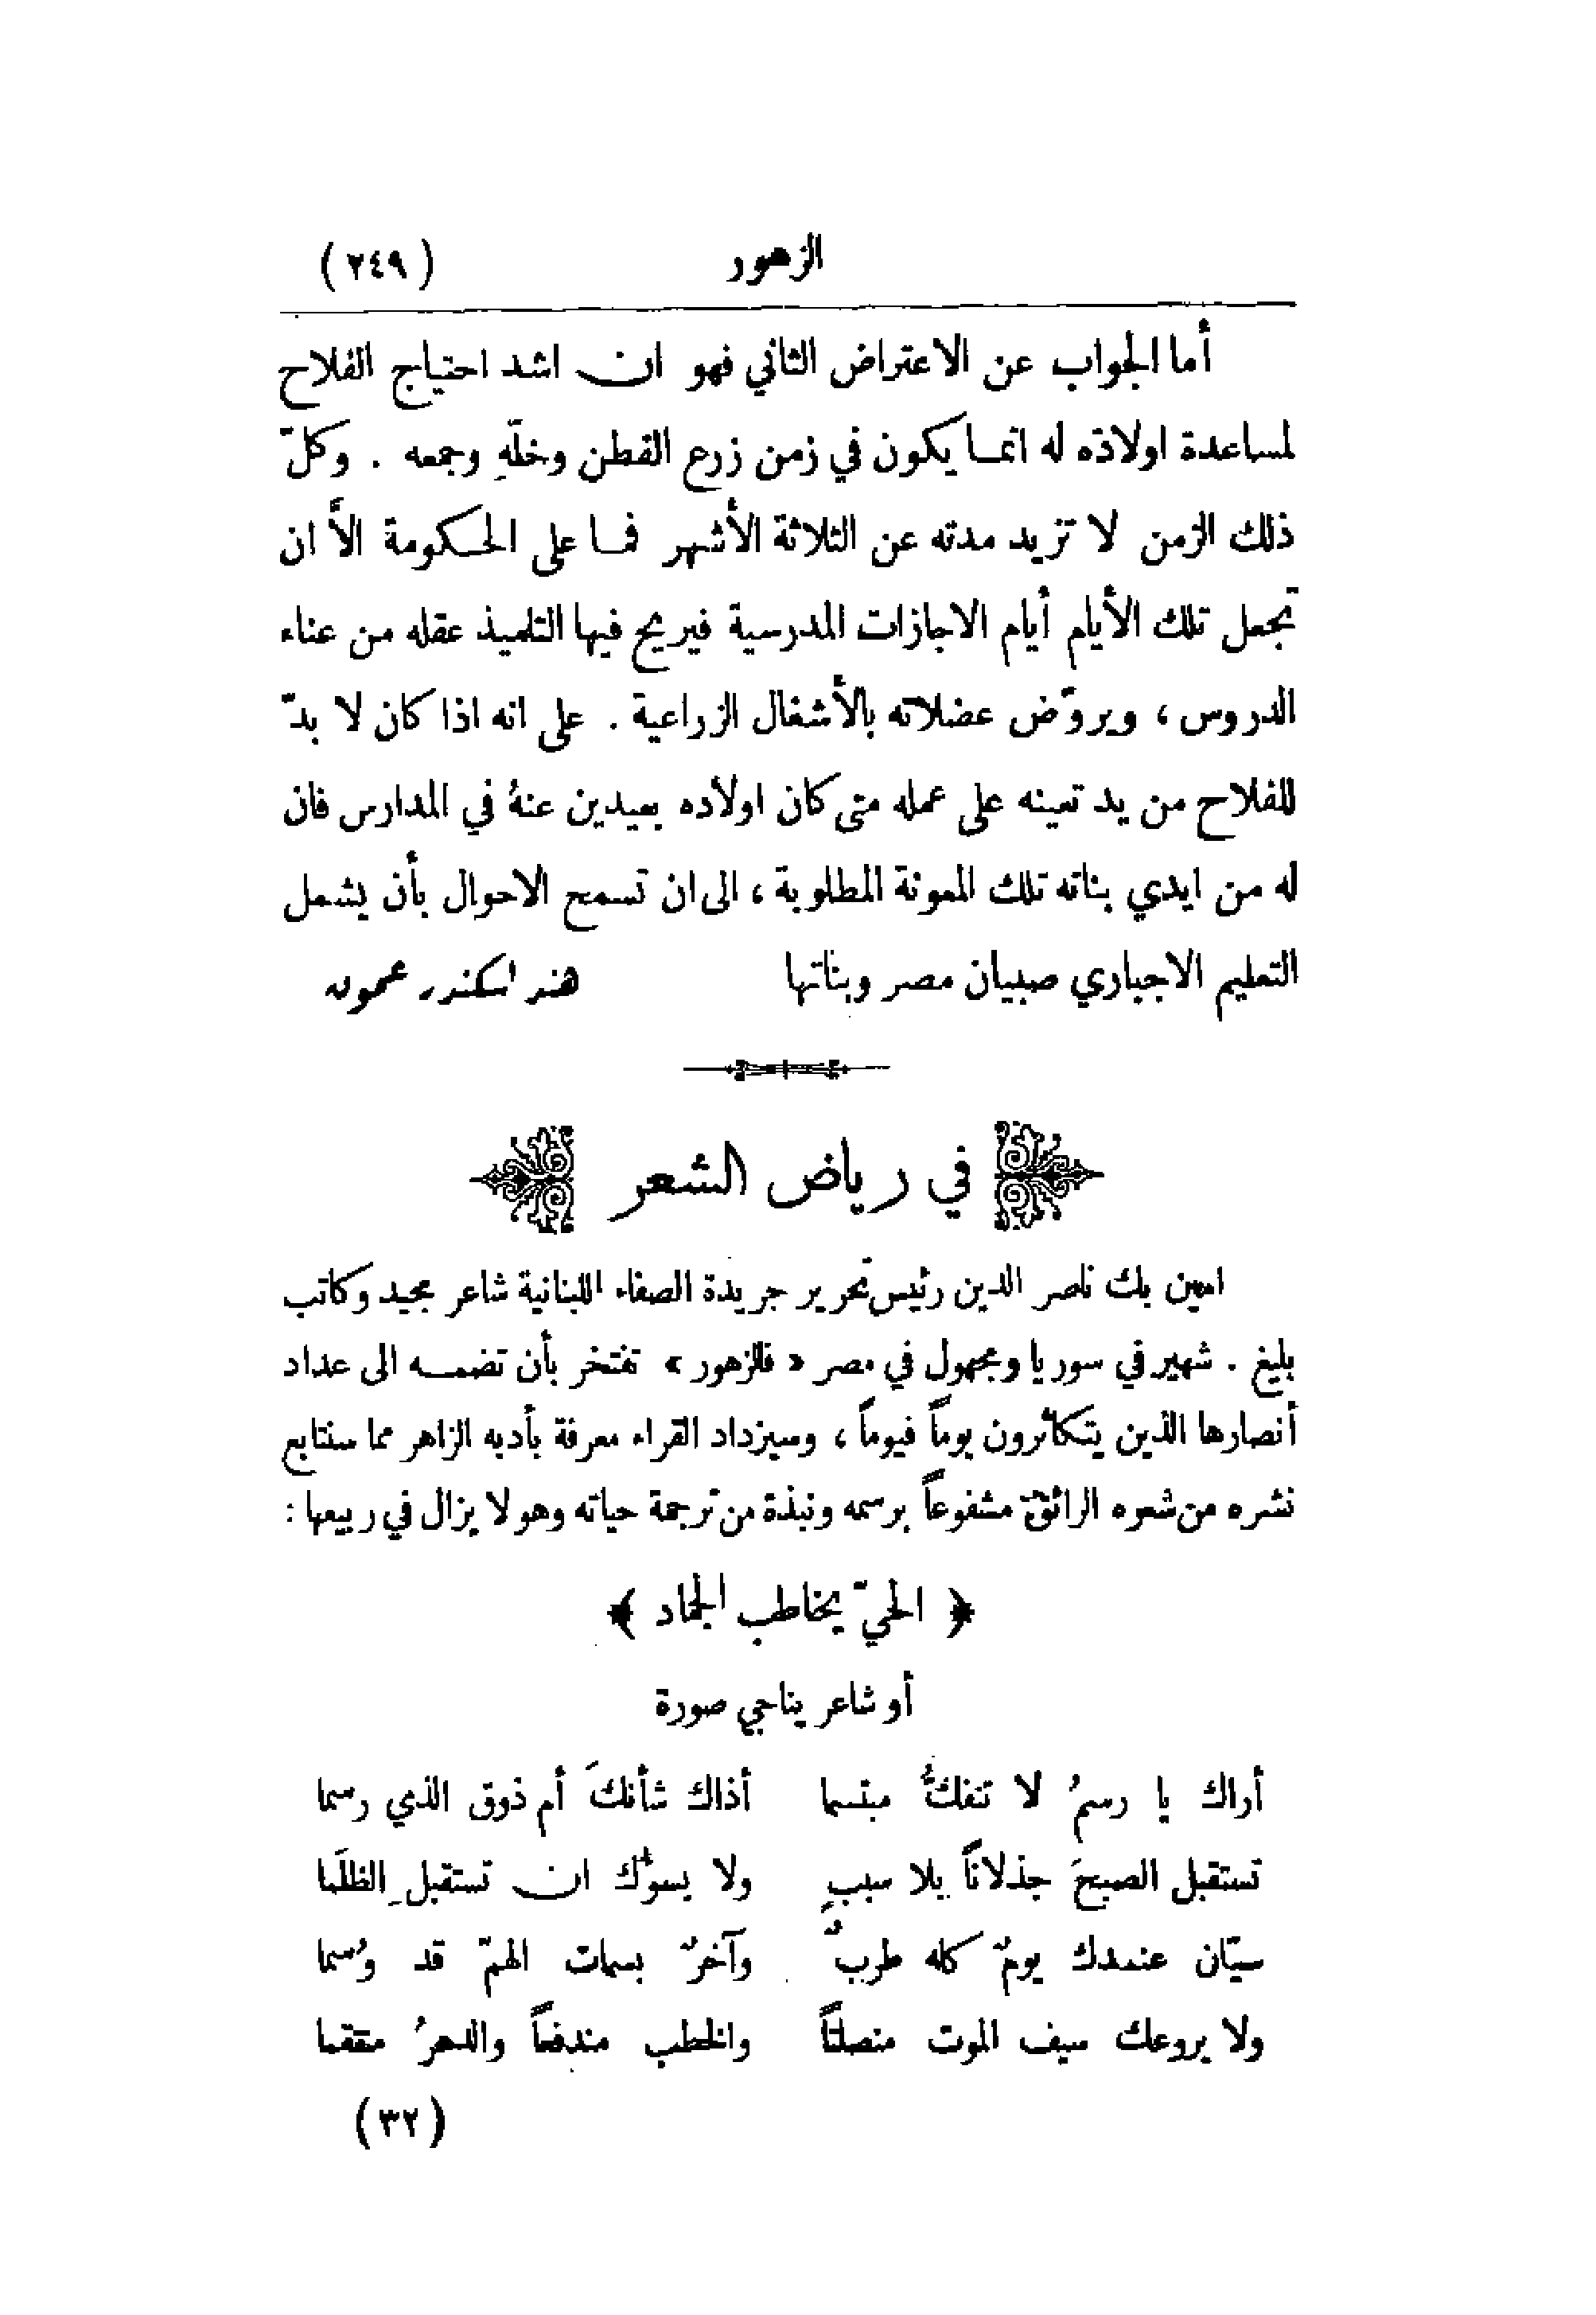 الزهور
(٢٤٩)
أما الجواب عن الاعتراض الثاني فهو ان اشد احتياج الفلاح
لمساعدة اولاده له انما يكون في زمن زرع القطن وخلّهِ وجمعه . وكلّ
ذلك الزمن لا تزيد مدته عن الثلاثة الأشهر فما على الحكومة الاَّ ان
تجعل تلك الأيام أيام الاجازات المدرسية فيريح فيها التلميذ عقله من عناء
الدروس ، ويروّض عضلاته بالأشغال الزراعية . على انه اذا كان لا بدّ
للفلاح من يد تعينه على عمله متى كان اولاده بعيدين عنهُ في المدارس فان
له من ايدي بناته تلك المعونة المطلوبة ، الى ان تسمح الاحوال بأن يشمل
التعليم الاجباري صبيان مصر وبناتها
هند اسكندر عمون
في رياض الشعر
امين بك ناصر الدين رئيس تحرير جريدة الصفاء اللبنانية شاعر مجيد وكاتب
بليغ . شهير في سوريا ومجهول في مصر « فالزهور » تفتخر بأن تضمه الى عداد
أنصارها الذين يتكاثرون يوماً فيوماً ، وسيزداد القراء معرفة بأدبه الزاهر مما سنتابع
نشره من شعره الرائق مشفوعاً برسمه ونبذة من ترجمة حياته وهو لا يزال في ربيعها :
﴿ الحيّ يخاطب الجماد ﴾
أو شاعر يناجي صورة
أراك يا رسمُ لا تنفكُّ مبتسما أذاك شأنكَ أم ذوق الذي رسما
تستقبل الصبحَ جذلاناً بلا سببٍ ولا يسوؤُك ان تستقبل الظلَما
سيّان عندك يومٌ كله طربٌ وآخرٌ بسمات الهمّ قد وُسما
ولا يروعك سيف الموت منصلتاً والخطب مندفعاً والدهرُ منتقما
(٣٢)